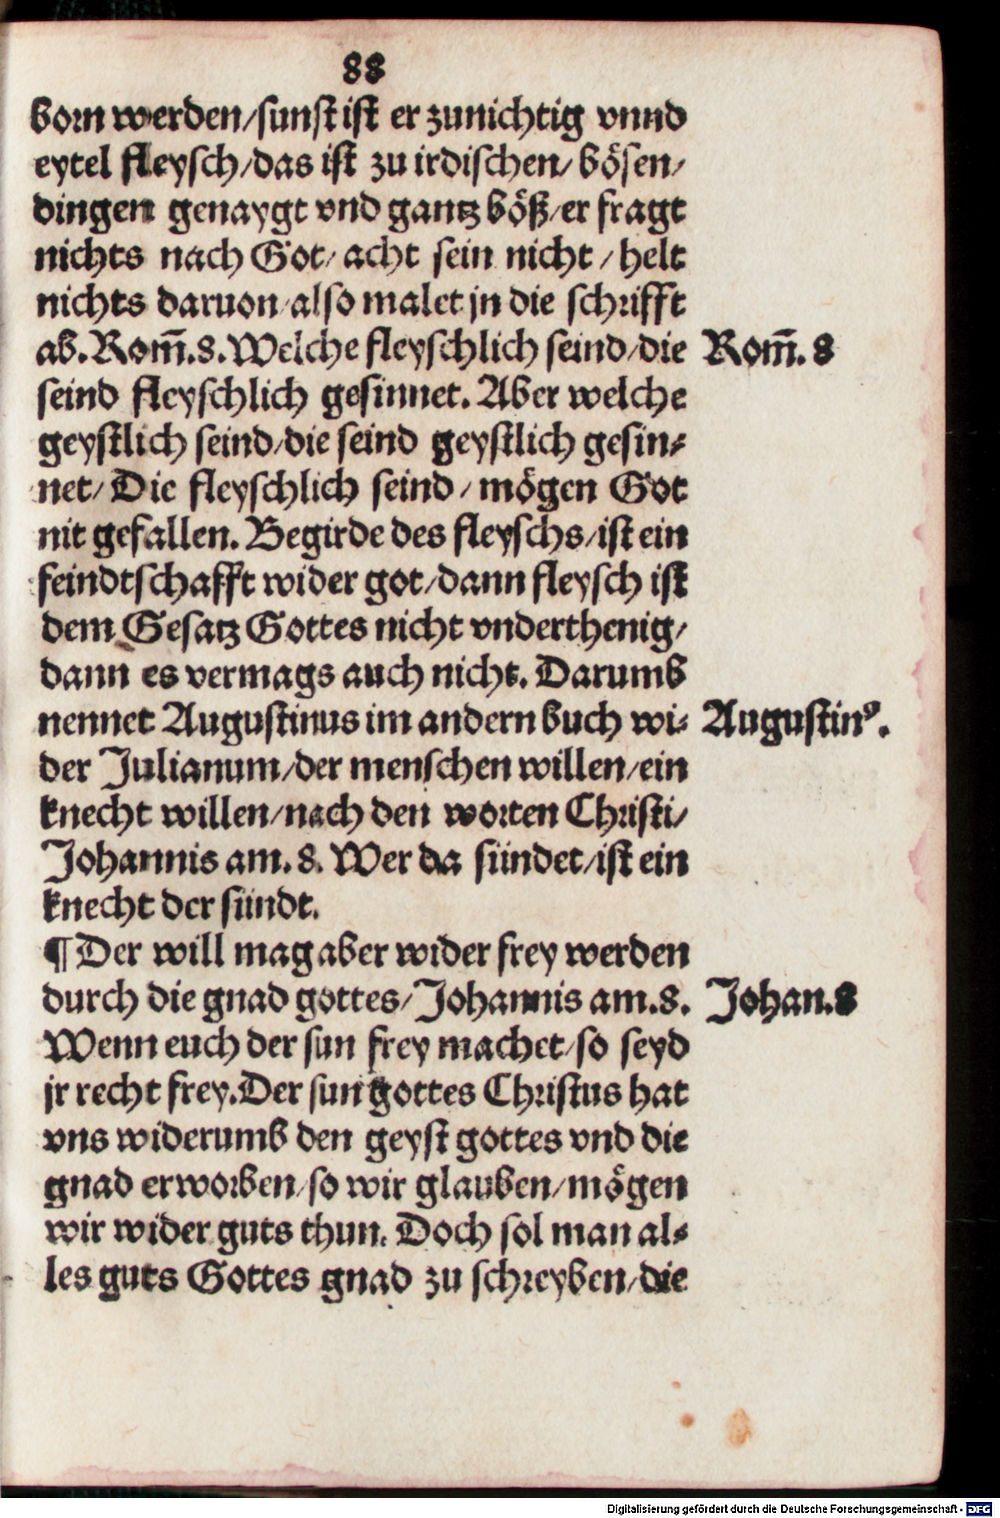 88
born werden/sunst ist er zunichtig vnnd
eytel fleysch/das ist zu irdischen/bösen/
dingen genaygt vnd gantz böß/er fragt
nichts nach Got/acht sein nicht/helt
nichts daruon/also malet jn die schrifft
ab.Rom̄.8.Welche fleyschlich seind/die
Rom̄.8
seind fleyschlich gesinnet.Aber welche
geystlich seind/die seind geystlich gesin-
net/Die fleyschlich seind/mögen Got
nit gefallen.Begirde des fleyschs/ist ein
feindtschafft wider got/dann fleysch ist
dem Gesatz Gottes nicht vnderthenig/
dann es vermags auch nicht.Darumb
nennet Augustinus im andern buch wi-
Augustinꝰ.
der Julianum/der menschen willen/ein
knecht willen/nach den worten Christi/
Johannis am.8.Wer da sündet/ist ein
knecht der sündt.
¶Der will mag aber wider frey werden
durch die gnad gottes/Johannis am.8.
Johan.8
Wenn euch der sun frey machet/so seyd
jr recht frey.Der sun gottes Christus hat
vns widerumb den geyst gottes vnd die
gnad erworben/so wir glauben/mögen
wir wider guts thun.Doch sol man al-
les guts Gottes gnad zu schreyben/die
Digitalisierung gefördert durch die Deutsche Forschungsgemeinschaft - DFG